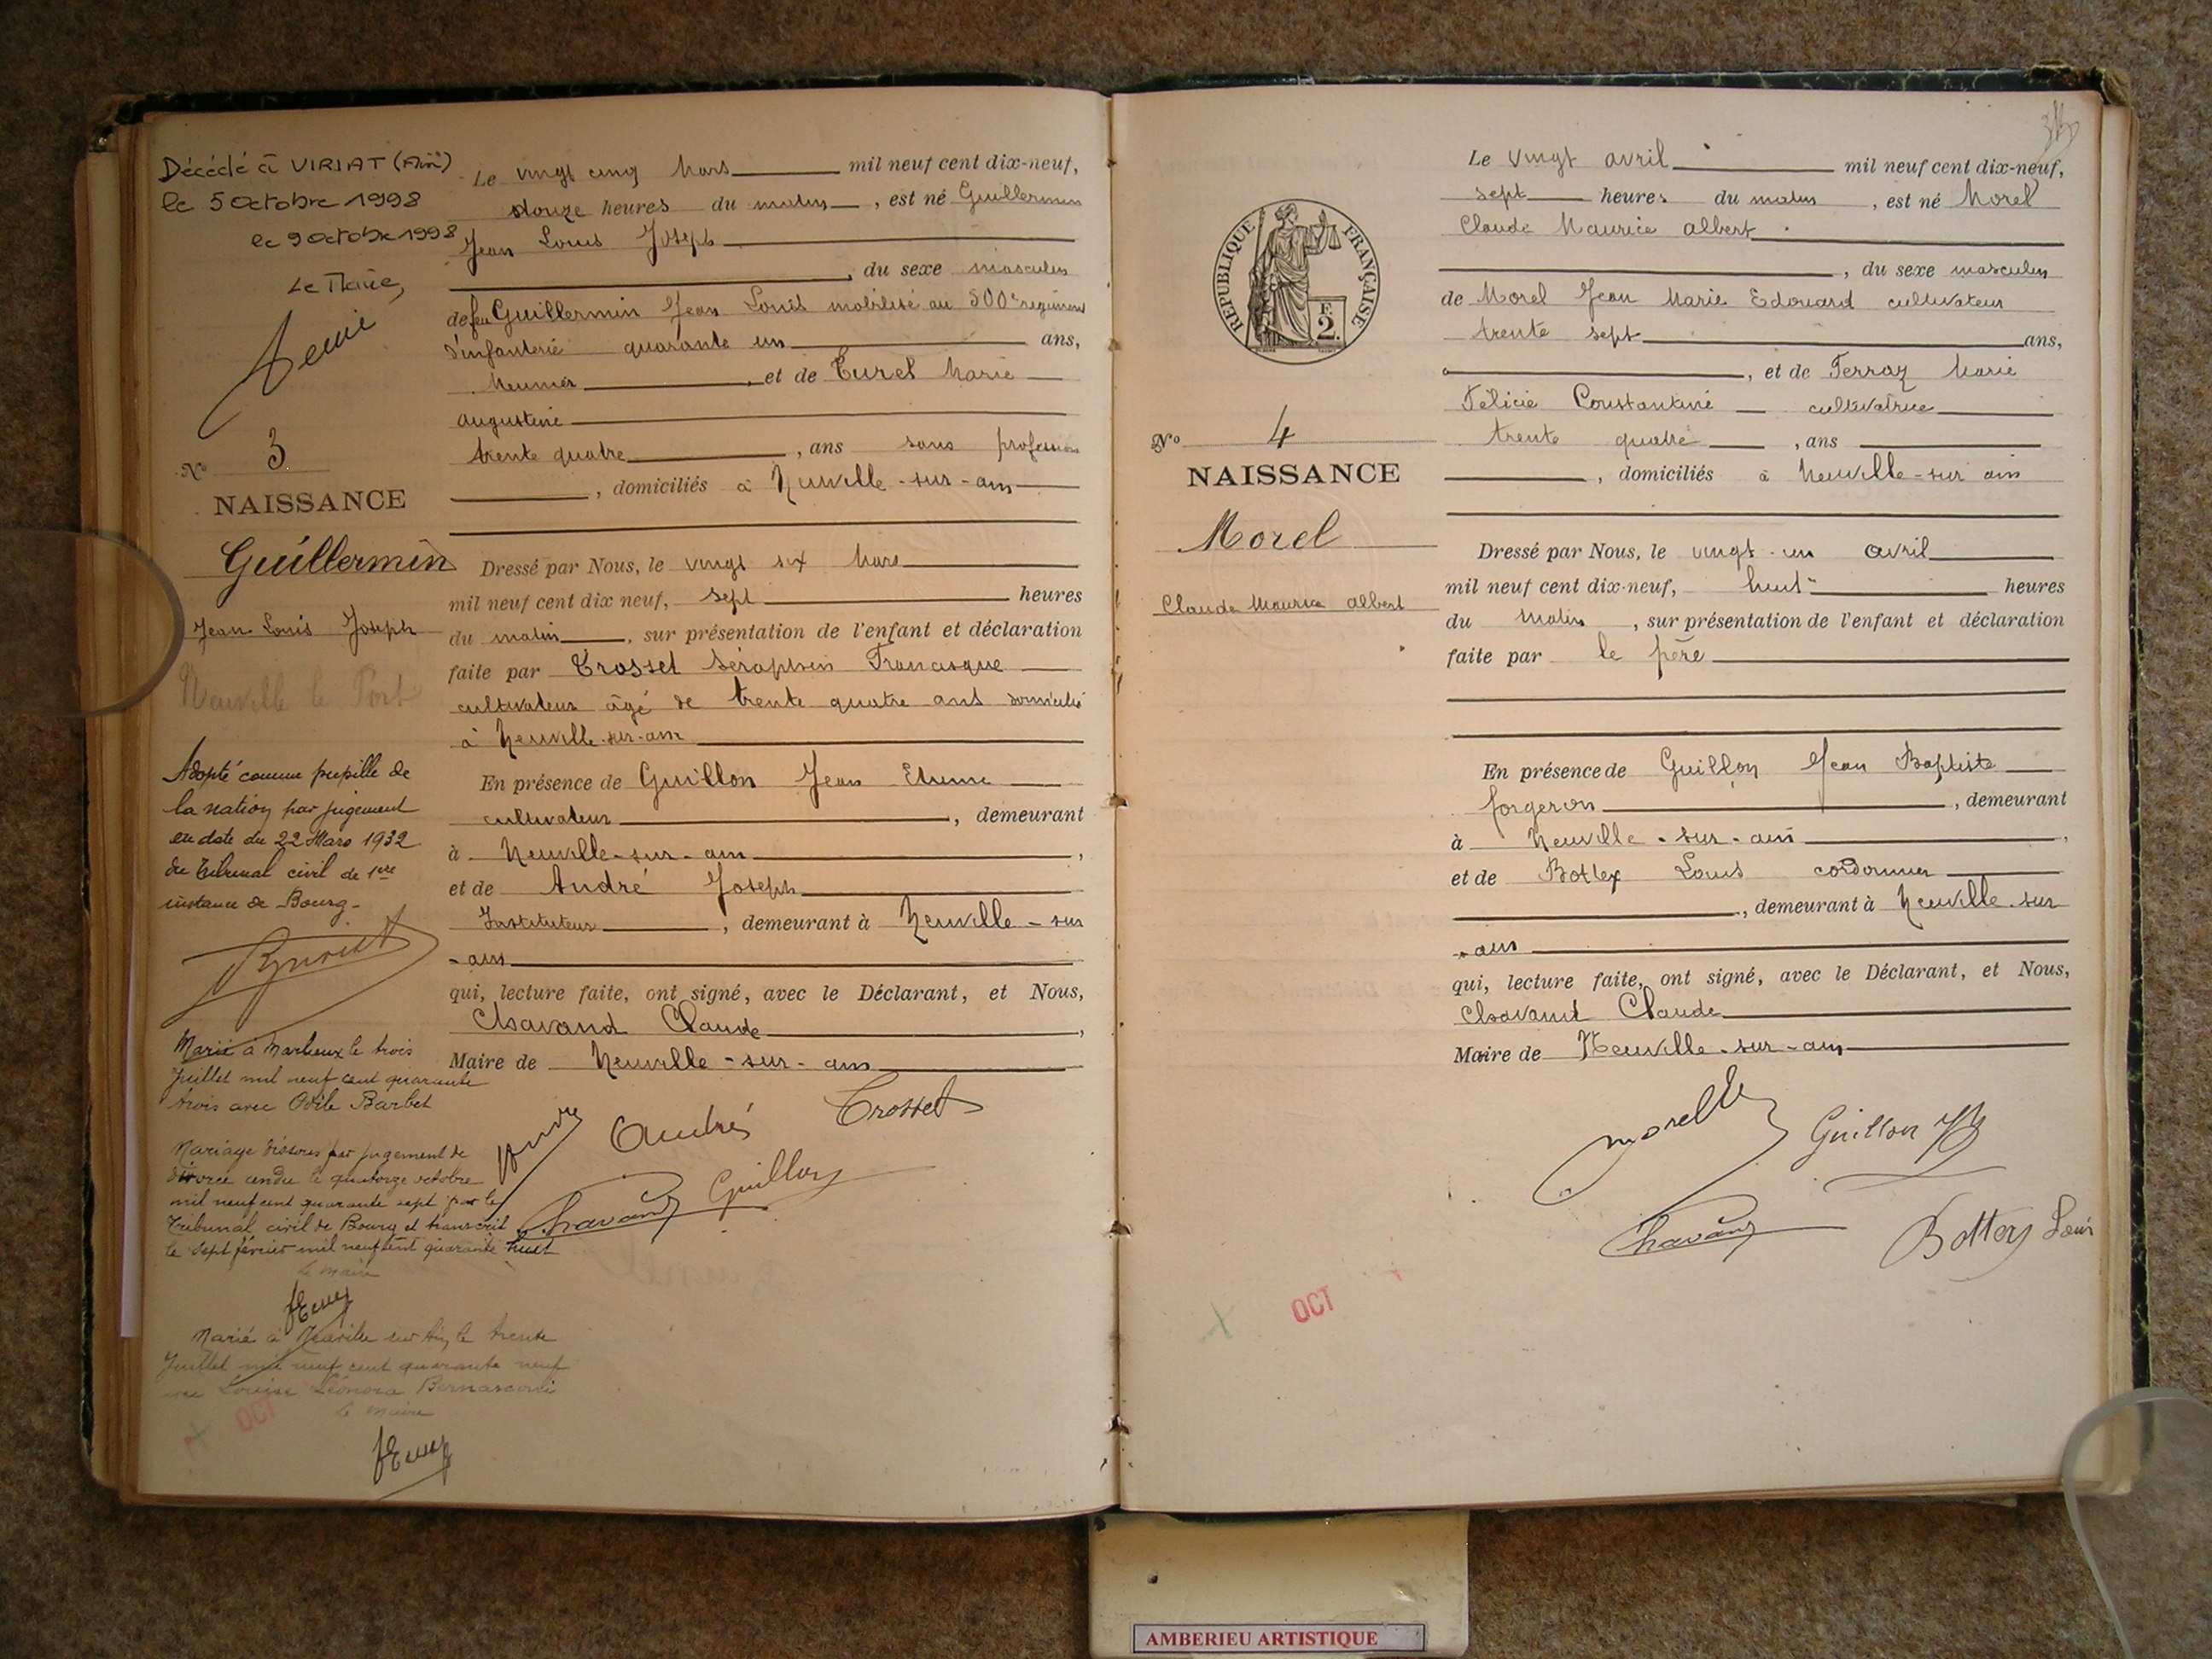 Décédé à VIRIAT (Ain)
le 5 Octobre 1998
le 9 octobre 1998
Le Maire,
N° 3
NAISSANCE
Guillermin
Jean Louis Joseph
Neuville le Pont
Adopté comme pupille de
la nation par jugement
en date du 22 Mars 1932
du Tribunal civil de 1ere
instance de Bourg-
Marié à Marlieux le trois
Juillet mil neuf cent quarante
trois avec Odile Barbet
Mariage dissous par jugement de
divorce rendu le quatorze octobre
mil neuf cent quarante sept par le
Tribunal civil de Bourg et transcrit
le sept février mil neuf cent quarante huit
le maire
Marié à Neuville sur Ain le trente
Juillet mil neuf cent quarante neuf
avec Louise Léonora Bernasconi
le maire
OCT
Le vingt cinq Mars mil neuf cent dix-neuf,
douze heures du matin, est né Guillermin
Jean Louis Joseph
, du sexe masculin
de feu Guillermin Jean Louis mobilisé au 500e régiment
d'infanterie quarante un ans,
et de Turel Marie
augustine
trente quatre, ans sans profession
, domiciliés à Neuville-sur-ain
Dressé par Nous, le vingt six Mars
mil neuf cent dix neuf, sept heures
du matin, sur présentation de l'enfant et déclaration
faite par Trosset Séraphin Francisque
cultivateur âgé de trente quatre ans domicilié
à Neuville-sur-ain
En présence de Guillon Jean Etienne
cultivateur, demeurant
à Neuville-sur-ain,
et de André Joseph
Instituteur, demeurant à Neuville-sur
-ain
qui, lecture faite, ont signé, avec le Déclarant, et Nous,
Chavand Claude,
Maire de Neuville-sur-ain
André Trosset
Chavand Guillon
RÉPUBLIQUE FRANÇAISE
2F.
N° 4
NAISSANCE
Morel
Claude Maurice albert
Le vingt avril mil neuf cent dix-neuf,
sept heures du matin, est né Morel
Claude Maurice albert
, du sexe masculin
de Morel Jean Marie Edouard cultivateur
trente sept ans,
, et de Ferraz Marie
Félicie Constantine cultivatrice
trente quatre, ans
, domiciliés à Neuville-sur ain
Dressé par Nous, le vingt-un avril
mil neuf cent dix-neuf, huit heures
du matin, sur présentation de l'enfant et déclaration
faite par le père
En présence de Guillon Jean Baptiste
forgeron, demeurant
à Neuville-sur-ain,
et de Bottex Louis cordonnier
, demeurant à Neuville-sur
-ain
qui, lecture faite, ont signé, avec le Déclarant, et Nous,
Chavand Claude
Maire de Neuville-sur-ain
Morel Guillon
Chavand Bottex Louis
OCT
AMBERIEU ARTISTIQUE